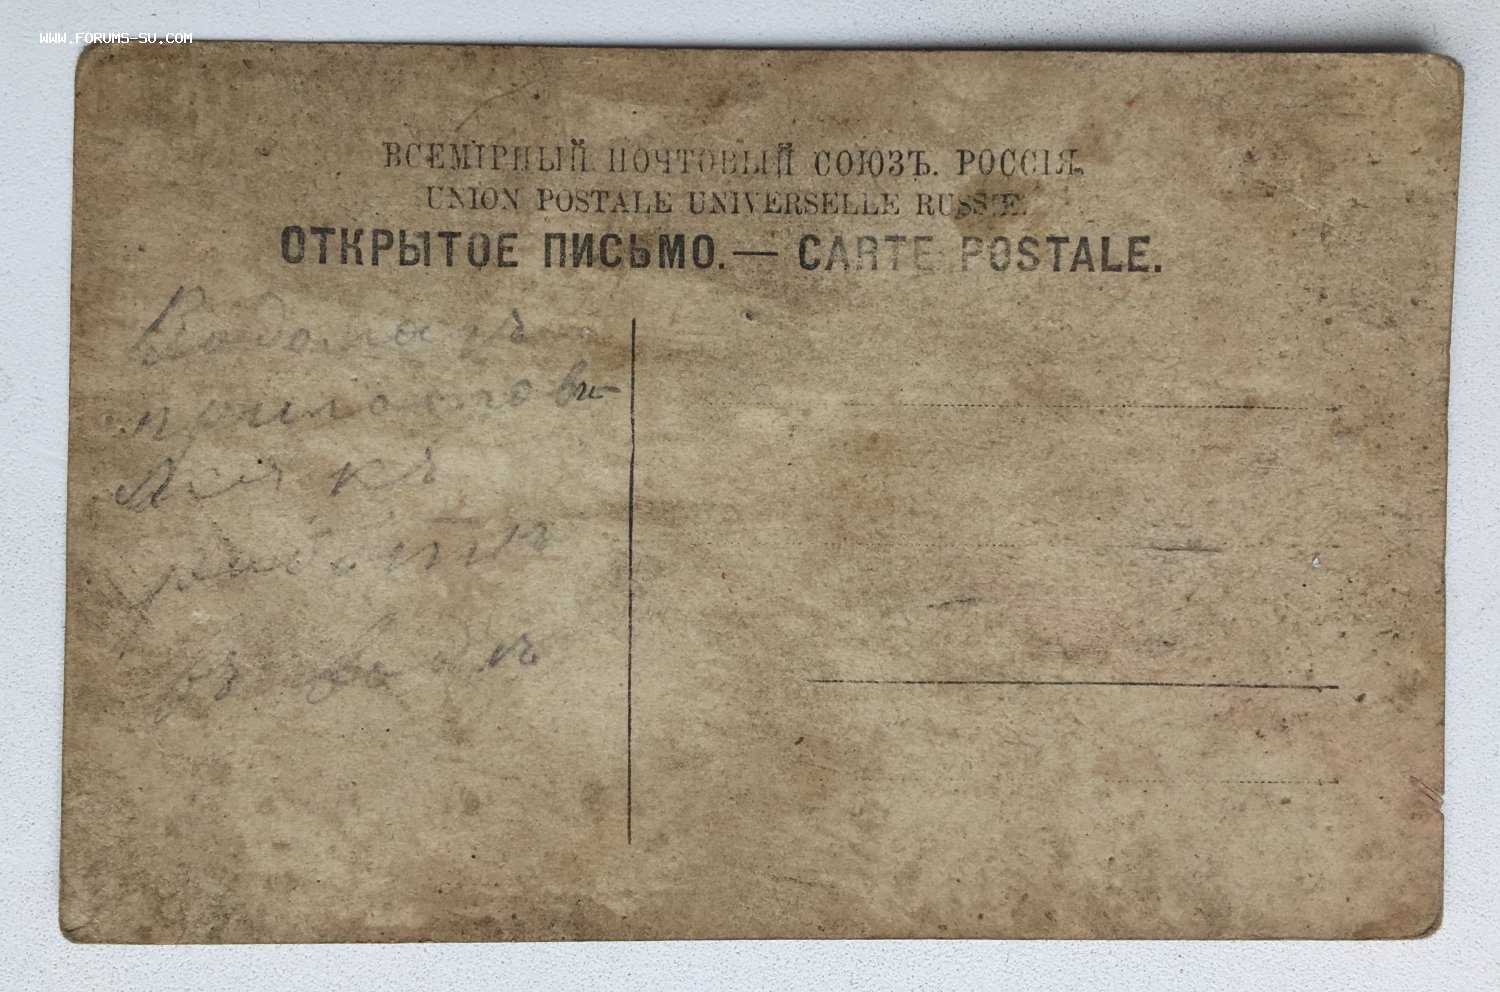 WWW.FORUMS-SU.COM
ВСЕМІРНЫЙ ПОЧТОВЫЙ СОЮЗЪ. РОССІЯ.
UNION POSTALE UNIVERSELLE RUSSIE.
ОТКРЫТОЕ ПИСЬМО.— CARTE POSTALE.
Водолазъ
къ
работѣ
въ водѣ